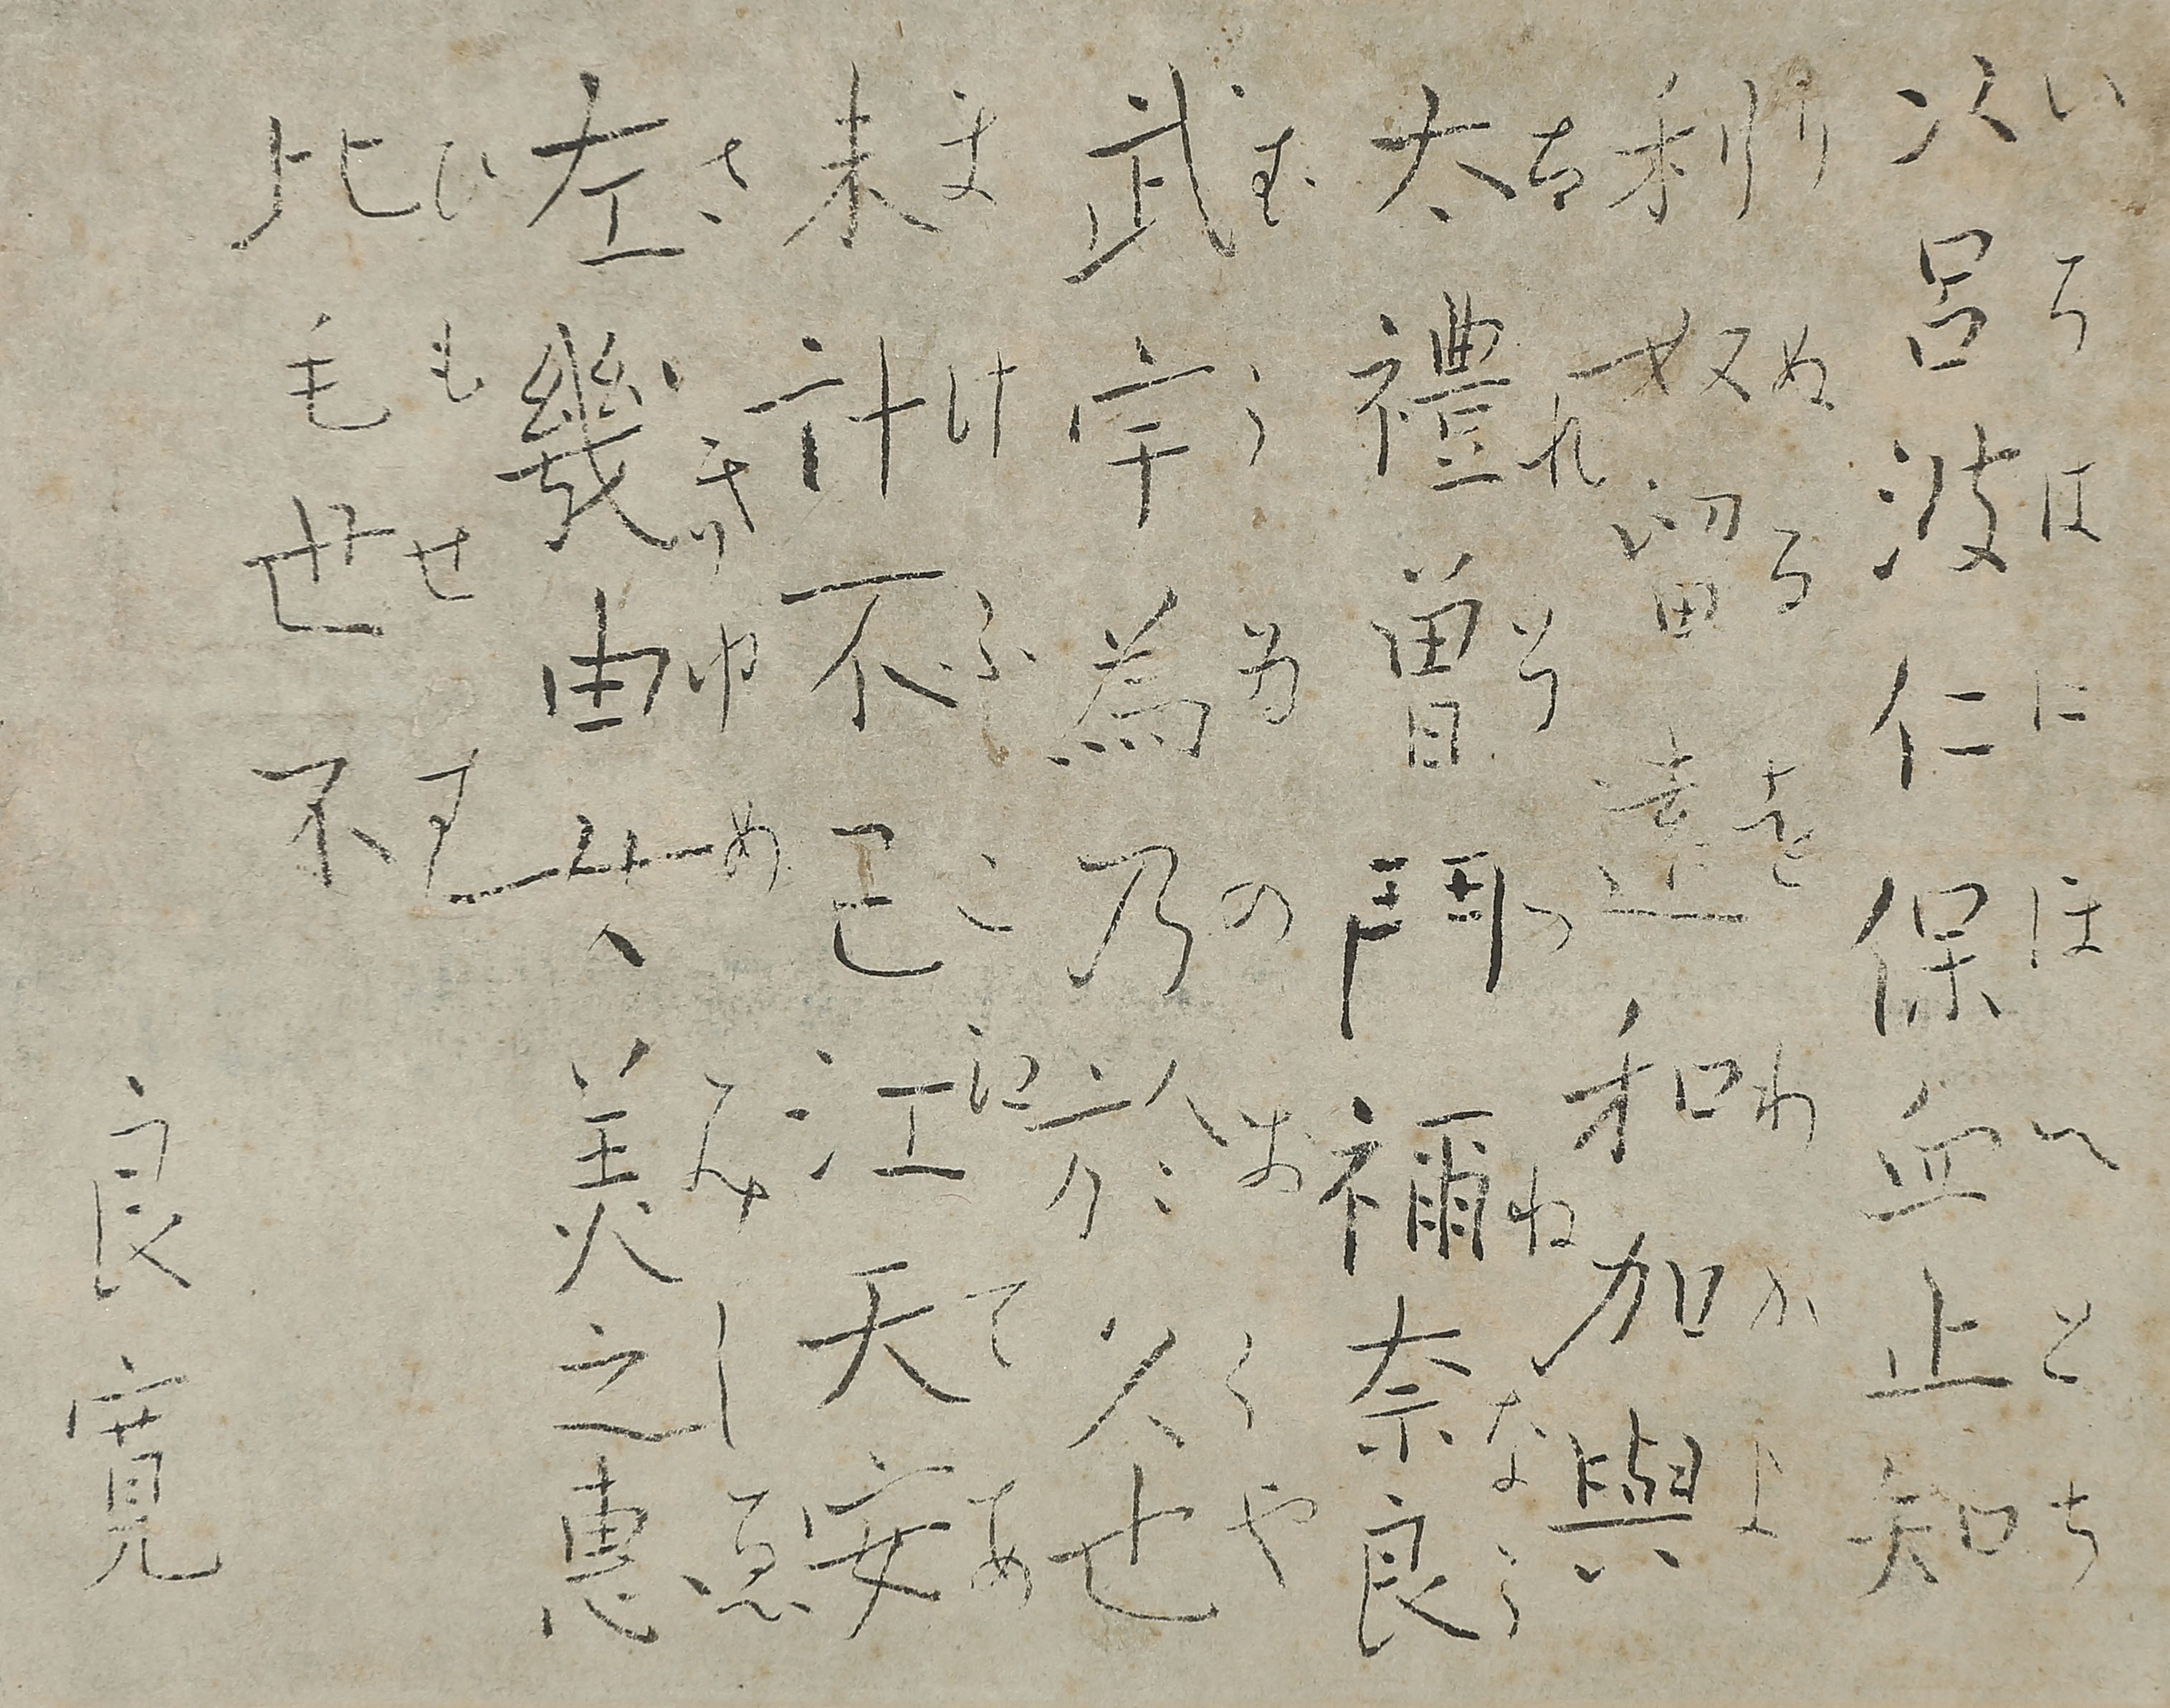 いろはにほへとち
以呂波仁保血止知
りぬるをわかよ
利奴留遠和加與
たれそつねなら
太禮曽鬥禰奈良
むうゐのおくや
武宇為乃於久也
まけふこえてあ
末計不己江天安
さきゆめみしゑ
左幾由女美之恵
ひもせす
比毛世不
良寛